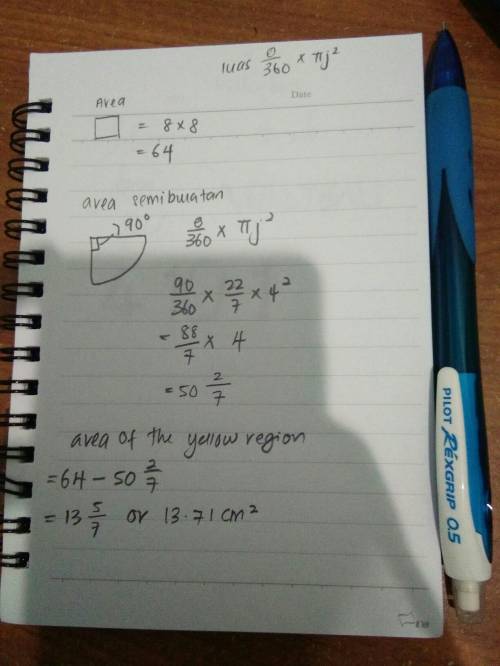 luas θ/360 × πj²
Date
Area
= 8 × 8
= 64
area semibulatan
90°
θ/360 × πj²
90/360 × 22/7 × 4²
= 88/7 × 4
= 50 2/7
area of the yellow region
= 64 − 50 2/7
= 13 5/7 or 13.71 cm²
PILOT REXGRIP 0.5